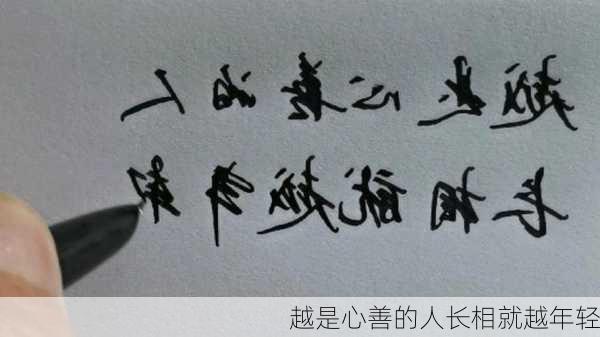 越是心善的人
长相就越年轻
越是心善的人长相就越年轻